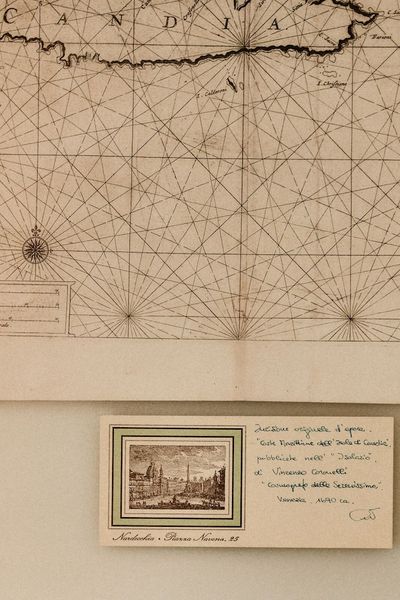 CANDIA
I. Calderoni
I. Christiana
Incisione originale d'epoca.
"Carta Marittima dell'Isola di Candia",
pubblicata nell' "Isolario"
di Vincenzo Coronelli
"Cosmografo della Serenissima,"
Venezia 1690 ca.
Nardecchia • Piazza Navona, 25